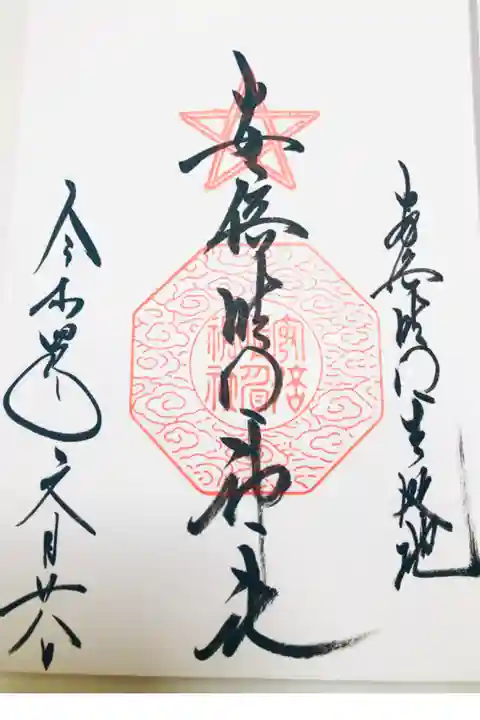 安倍晴明生誕地
安倍晴明神社
令和四年
月廿八日
安倍
晴明
神社